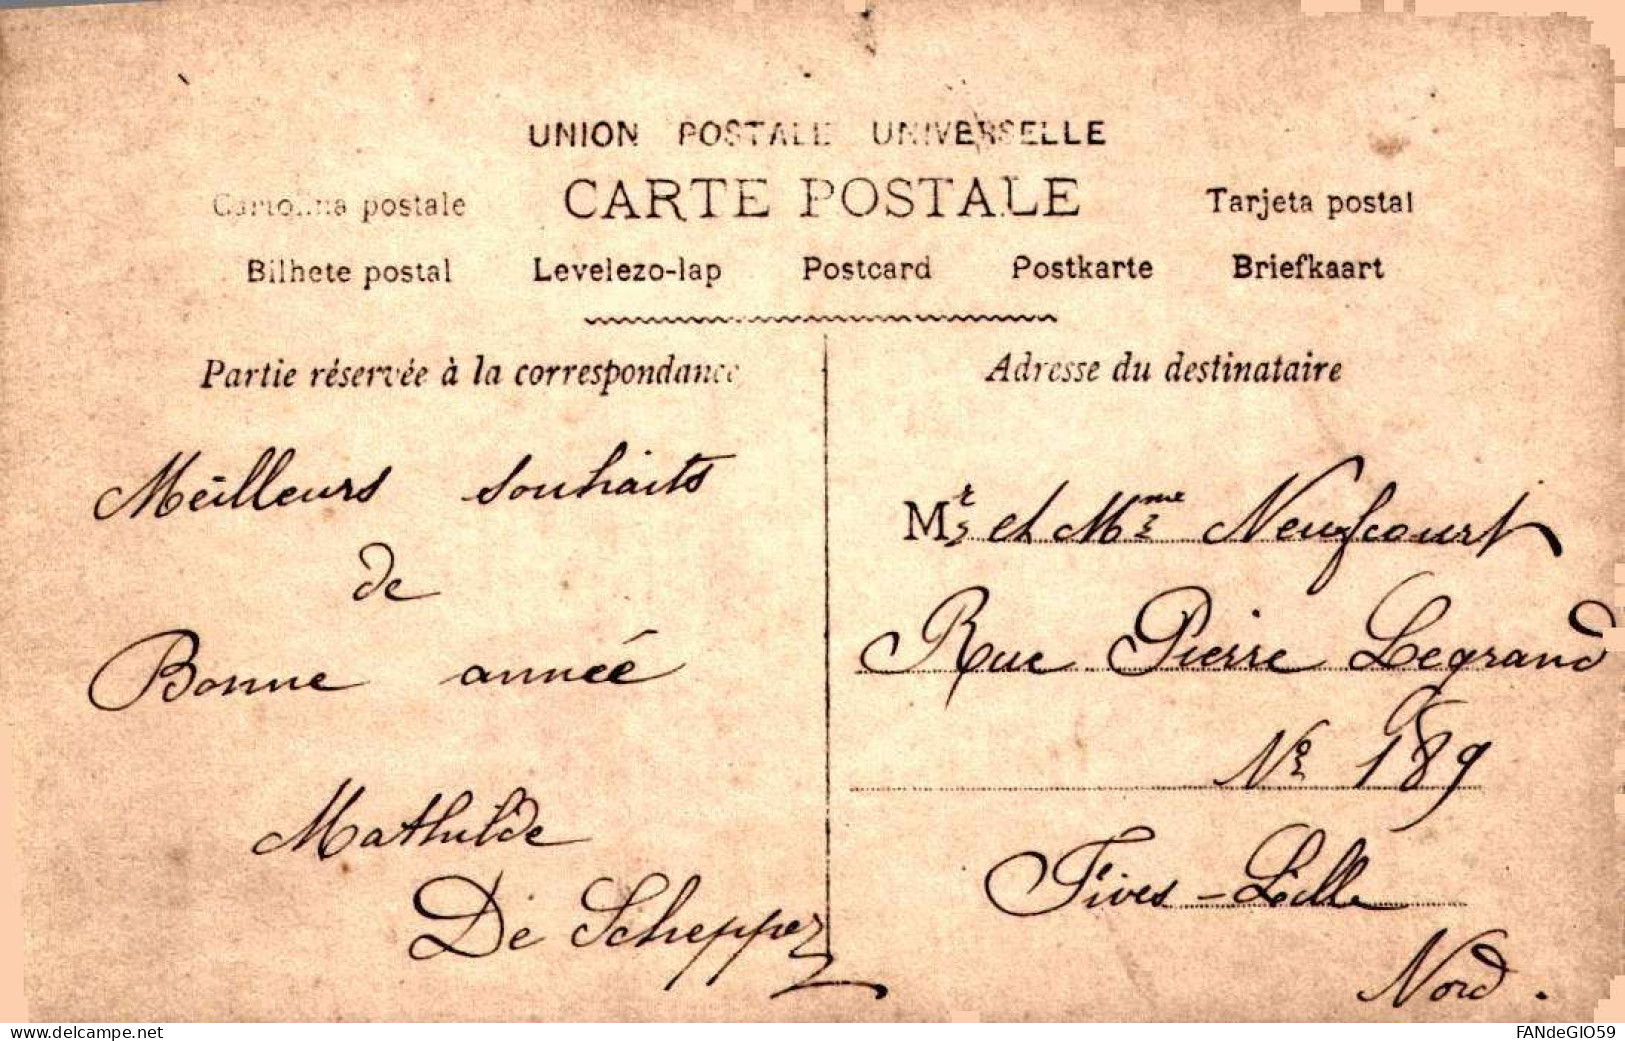 UNION POSTALE UNIVERSELLE
Cartolina postale CARTE POSTALE Tarjeta postal
Bilhete postal Levelezo-lap Postcard Postkarte Briefkaart
Partie réservée à la correspondance
Meilleurs souhaits
de
Bonne année
Mathilde
De Schepper
Adresse du destinataire
Mr et Mme Neufcourt
Rue Pierre Legrand
No 189
Fives - Lille
Nord.
www.delcampe.net
FANdeGIO59